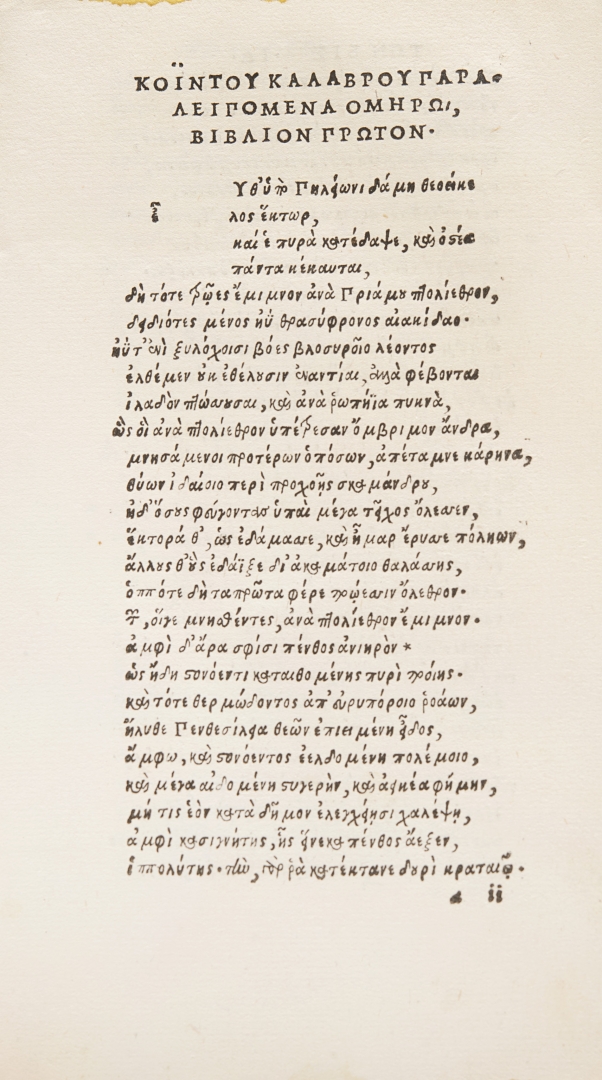 ΚΟΪΝΤΟΥ ΚΑΛΑΒΡΟΥ ΠΑΡΑ-
ΛΕΙΠΟΜΕΝΑ ΟΜΗΡΩι,
ΒΙΒΛΙΟΝ ΠΡΩΤΟΝ.
ε Υθ' ὑπὸ Πηλείωνι δάμη θεοείκε
λος ἕκτωρ,
καί ἑ πυρὰ κατέδαψε, καὶ ὀστέα
πάντα κέκαυται,
δὴ τότε τρῶες ἔμιμνον ἀνὰ Πριάμου πτολίεθρον,
δειδιότες μένος ἠῢ θρασύφρονος αἰακίδαο.
ἠΰτ' ἐνὶ ξυλόχοισι βόες βλοσυροῖο λέοντος
ἐλθέμεν οὐκ ἐθέλουσιν ἐναντίαι, ἀλλὰ φέβονται
ἰλαδὸν πτώσσουσαι, καὶ ἀνὰ ῥωπήϊα πυκνὰ,
ὣς οἱ ἀνὰ πτολίεθρον ὑπέτρεσαν ὄμβριμον ἄνδρα,
μνησάμενοι προτέρων ὁπόσων, ἀπέταμνε κάρηνα,
θύων ἰδαίοιο περὶ προχοῇς σκαμάνδρου,
ἠδ' ὅσους φεύγοντας ὑπαὶ μέγα τεῖχος ὄλεσσεν,
ἕκτορά θ', ὡς ἐδάμασσε, καὶ ἦμαρ ἔρυσσε πόληων,
ἄλλους θ' οὓς ἐδάϊξε δι' ἀκαμάτοιο θαλάσσης,
ὁππότε δὴ τα πρῶτα φέρε τρώεσσιν ὄλεθρον.
τῶν, οἵγε μνησθέντες, ἀνὰ πτολίεθρον ἔμιμνον.
ἀμφὶ δ' ἄρα σφίσι πένθος ἀνιηρὸν *
ὡς ἤδη στονόεντι καταιθομένης πυρὶ τροίης.
καὶ τότε θερμώδοντος ἀπ' εὐρυπόροιο ῥοάων,
ἤλυθε Πενθεσίλεια θεῶν ἐπιειμένη εἶδος,
ἄμφω, καὶ στονόεντος ἐελδομένη πολέμοιο,
καὶ μέγα αἰδομένη στυγερὴν, καὶ ἀεικέα φήμην,
μή τις ἑὸν κατὰ δῆμον ἐλεγχείησι χαλέψῃ,
ἀμφὶ κασιγνήτης, ἧς εἵνεκα πένθος ἄεξεν,
ἱππολύτης. τὴν, γάρ ῥὰ κατέκτανε δουρὶ κραταιῷ.
a ii